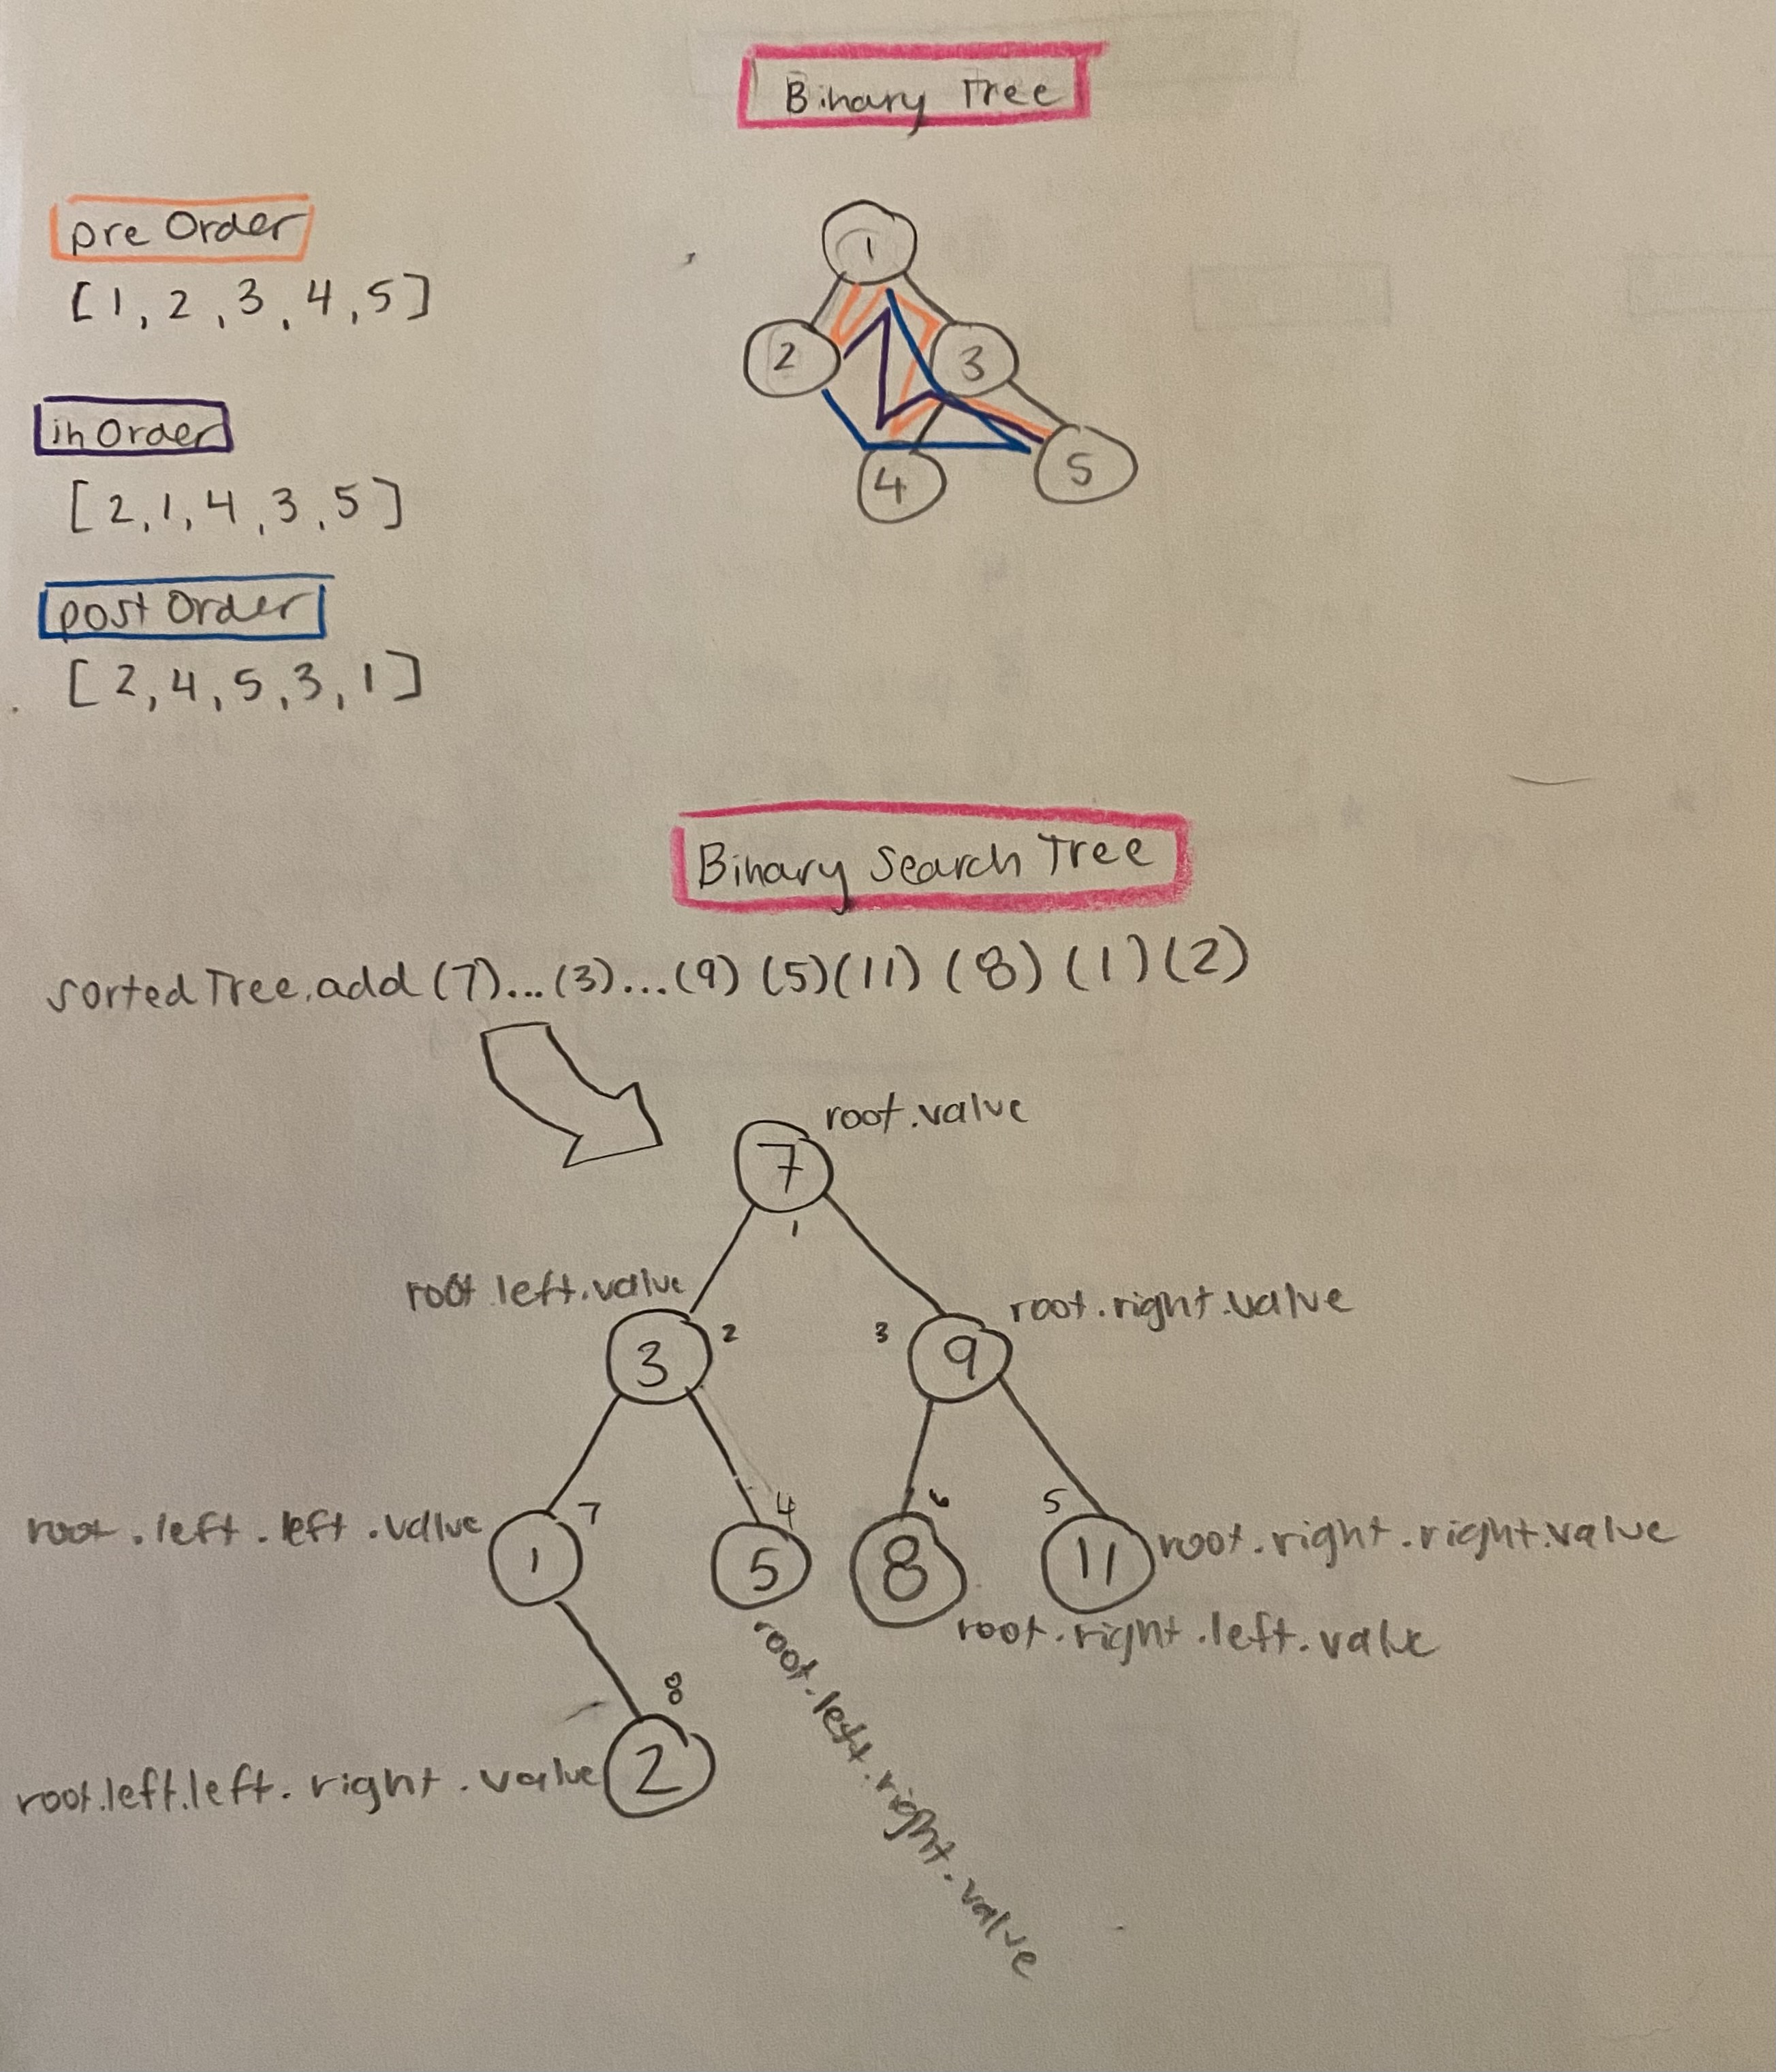 Binary Tree
pre Order
[1, 2, 3, 4, 5]
in Order
[2, 1, 4, 3, 5]
post Order
[2, 4, 5, 3, 1]
1
2
3
4
5
Binary Search Tree
sorted Tree.add (7)...(3)...(9) (5)(11) (8) (1)(2)
root.value
7
1
root.left.value
root.right.value
3
2
3
9
root.left.left.value
7
4
6
5
1
5
8
11
root.right.right.value
root.right.left.value
root.left.right.value
8
root.left.left.right.value
2